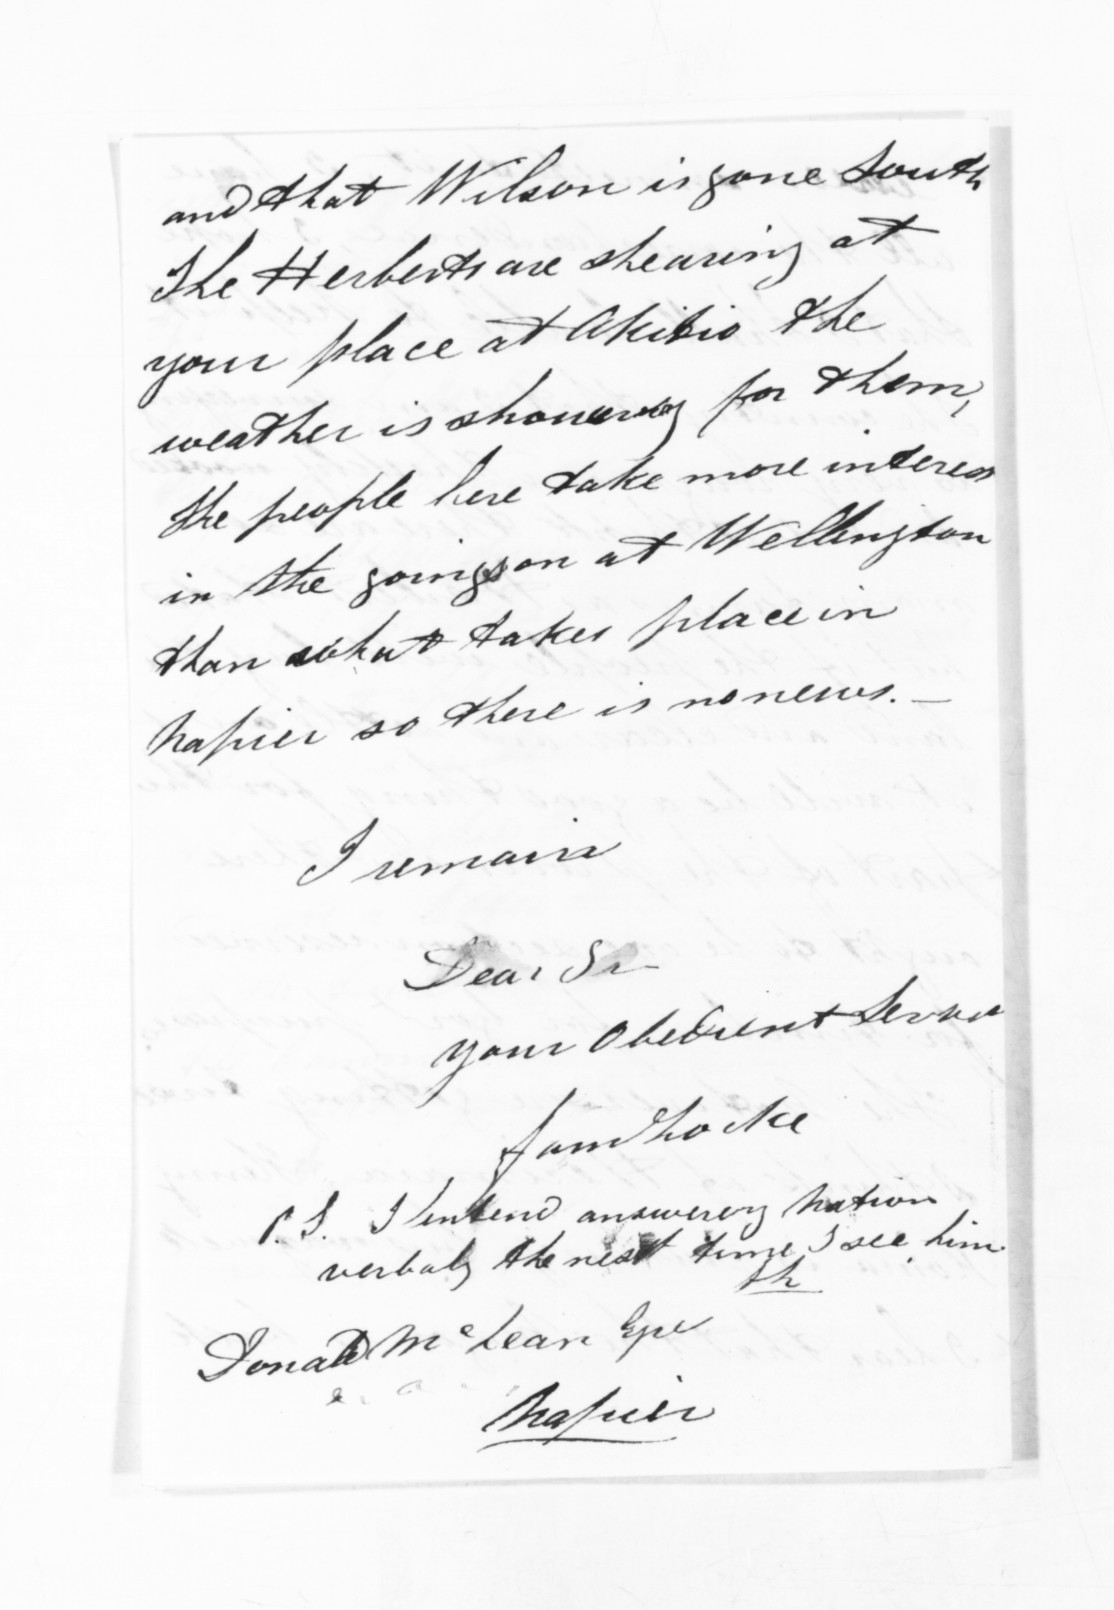 and that Wilson is gone South
The Herberts are shearing at
your place at Akitio the
weather is showery for them,
the people here take more interest
in the goings on at Wellington
than what takes place in
Napier so there is no news. —
I remain
Dear Sir
your Obedient Servant
Jam Locke
P.S. I intend answering
verbaly the next time I see him
Donald McLean Esqre
Napier